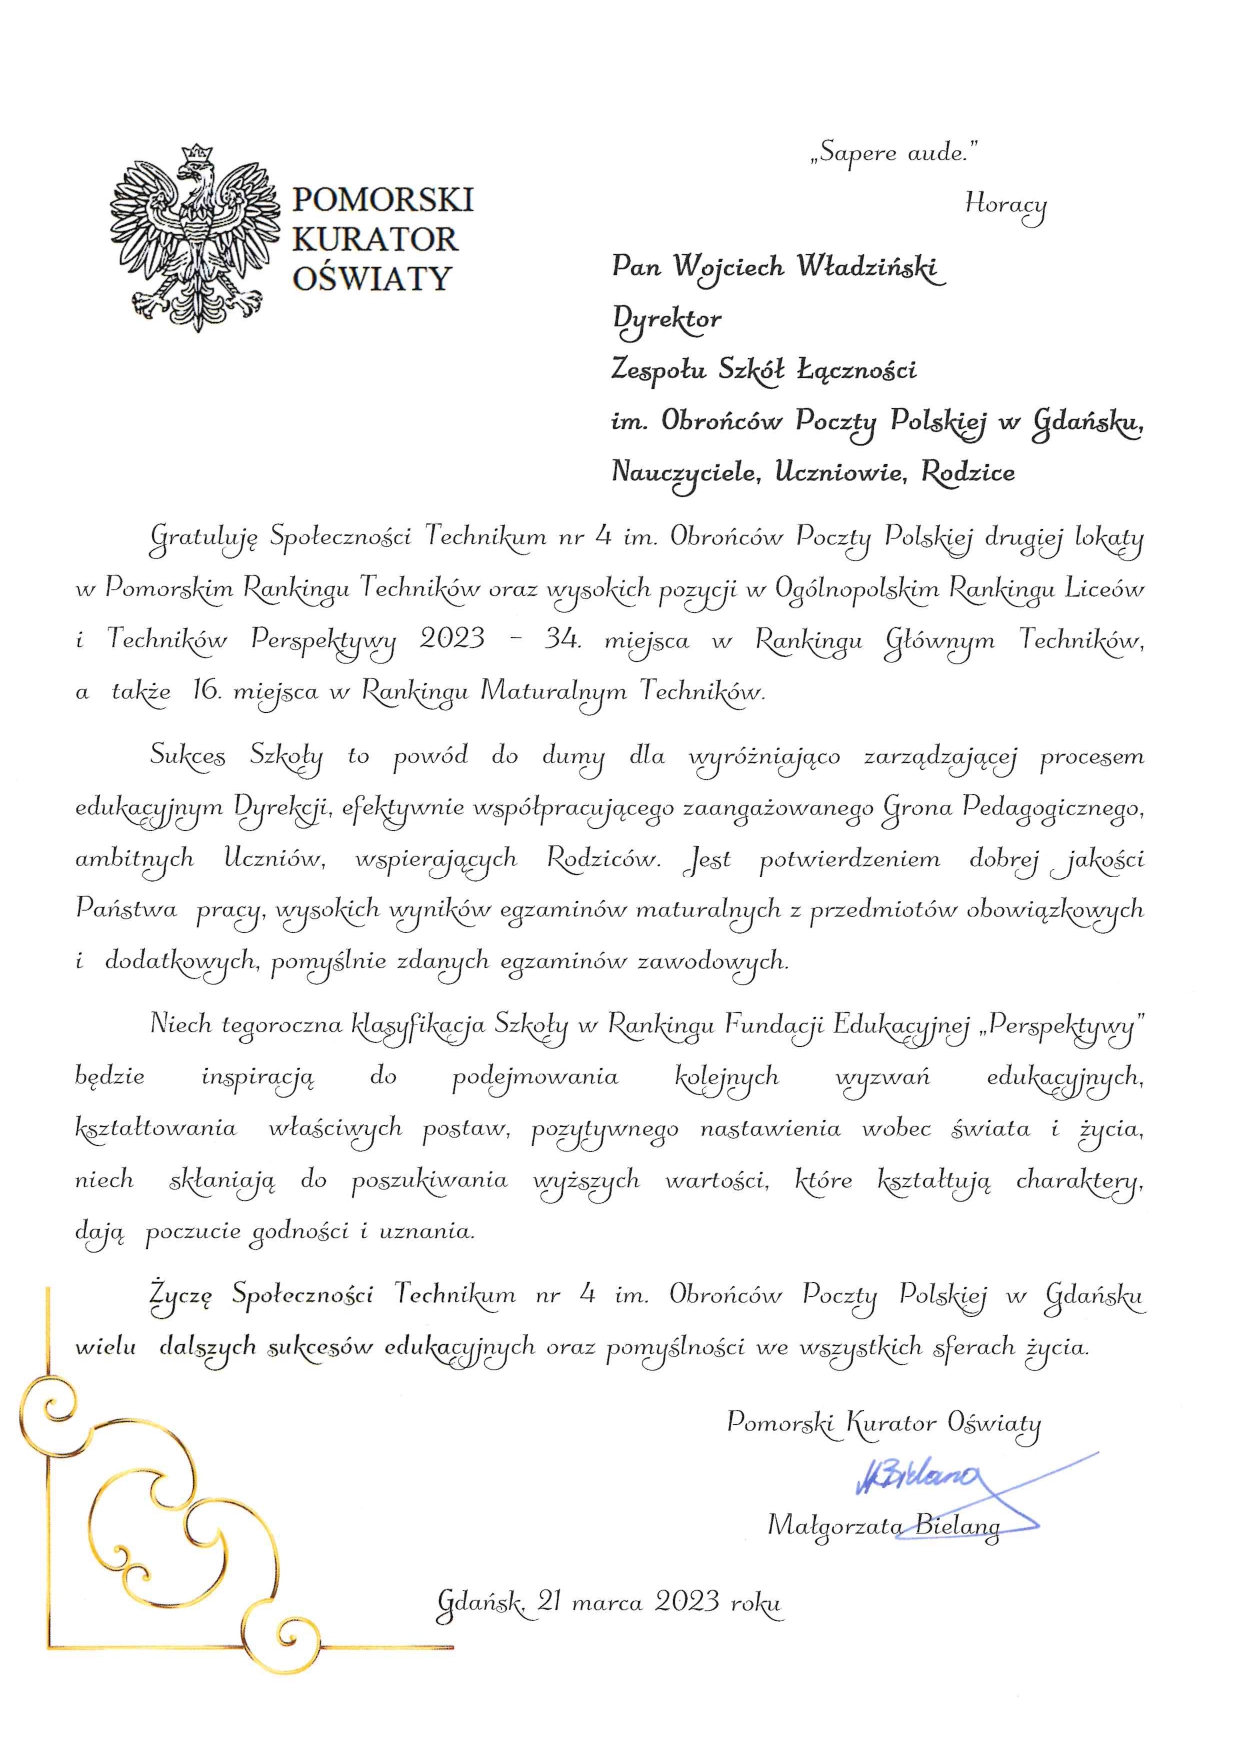 „Sapere aude.”
Horacy
POMORSKI
KURATOR
OŚWIATY
Pan Wojciech Władziński
Dyrektor
Zespołu Szkół Łączności
im. Obrońców Poczty Polskiej w Gdańsku,
Nauczyciele, Uczniowie, Rodzice
Gratuluję Społeczności Technikum nr 4 im. Obrońców Poczty Polskiej drugiej lokaty
w Pomorskim Rankingu Techników oraz wysokich pozycji w Ogólnopolskim Rankingu Liceów
i Techników Perspektywy 2023 – 34. miejsca w Rankingu Głównym Techników,
a także 16. miejsca w Rankingu Maturalnym Techników.
Sukces Szkoły to powód do dumy dla wyróżniająco zarządzającej procesem
edukacyjnym Dyrekcji, efektywnie współpracującego zaangażowanego Grona Pedagogicznego,
ambitnych Uczniów, wspierających Rodziców. Jest potwierdzeniem dobrej jakości
Państwa pracy, wysokich wyników egzaminów maturalnych z przedmiotów obowiązkowych
i dodatkowych, pomyślnie zdanych egzaminów zawodowych.
Niech tegoroczna klasyfikacja Szkoły w Rankingu Fundacji Edukacyjnej „Perspektywy”
będzie inspiracją do podejmowania kolejnych wyzwań edukacyjnych,
kształtowania właściwych postaw, pozytywnego nastawienia wobec świata i życia,
niech skłaniają do poszukiwania wyższych wartości, które kształtują charaktery,
dają poczucie godności i uznania.
Życzę Społeczności Technikum nr 4 im. Obrońców Poczty Polskiej w Gdańsku
wielu dalszych sukcesów edukacyjnych oraz pomyślności we wszystkich sferach życia.
Pomorski Kurator Oświaty
MBielang
Małgorzata Bielang
Gdańsk, 21 marca 2023 roku